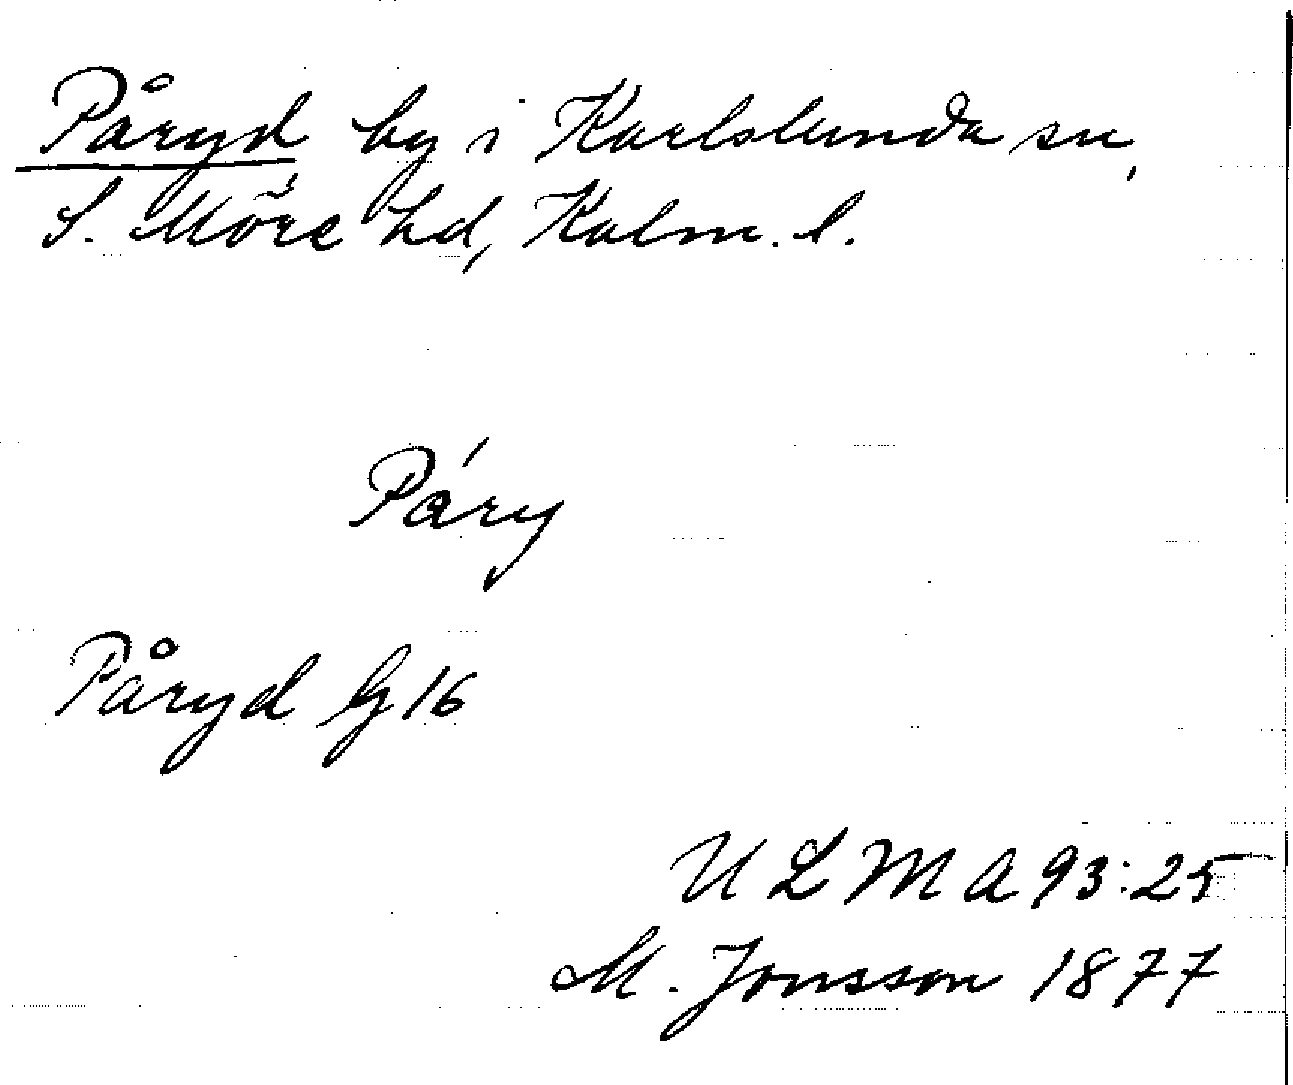 Påryd by i Karlslunda sn,
S. Möre hd, Kalm. l.
Páry
Påryd G 16
U L M A 93:25
M. Jonsson 1877